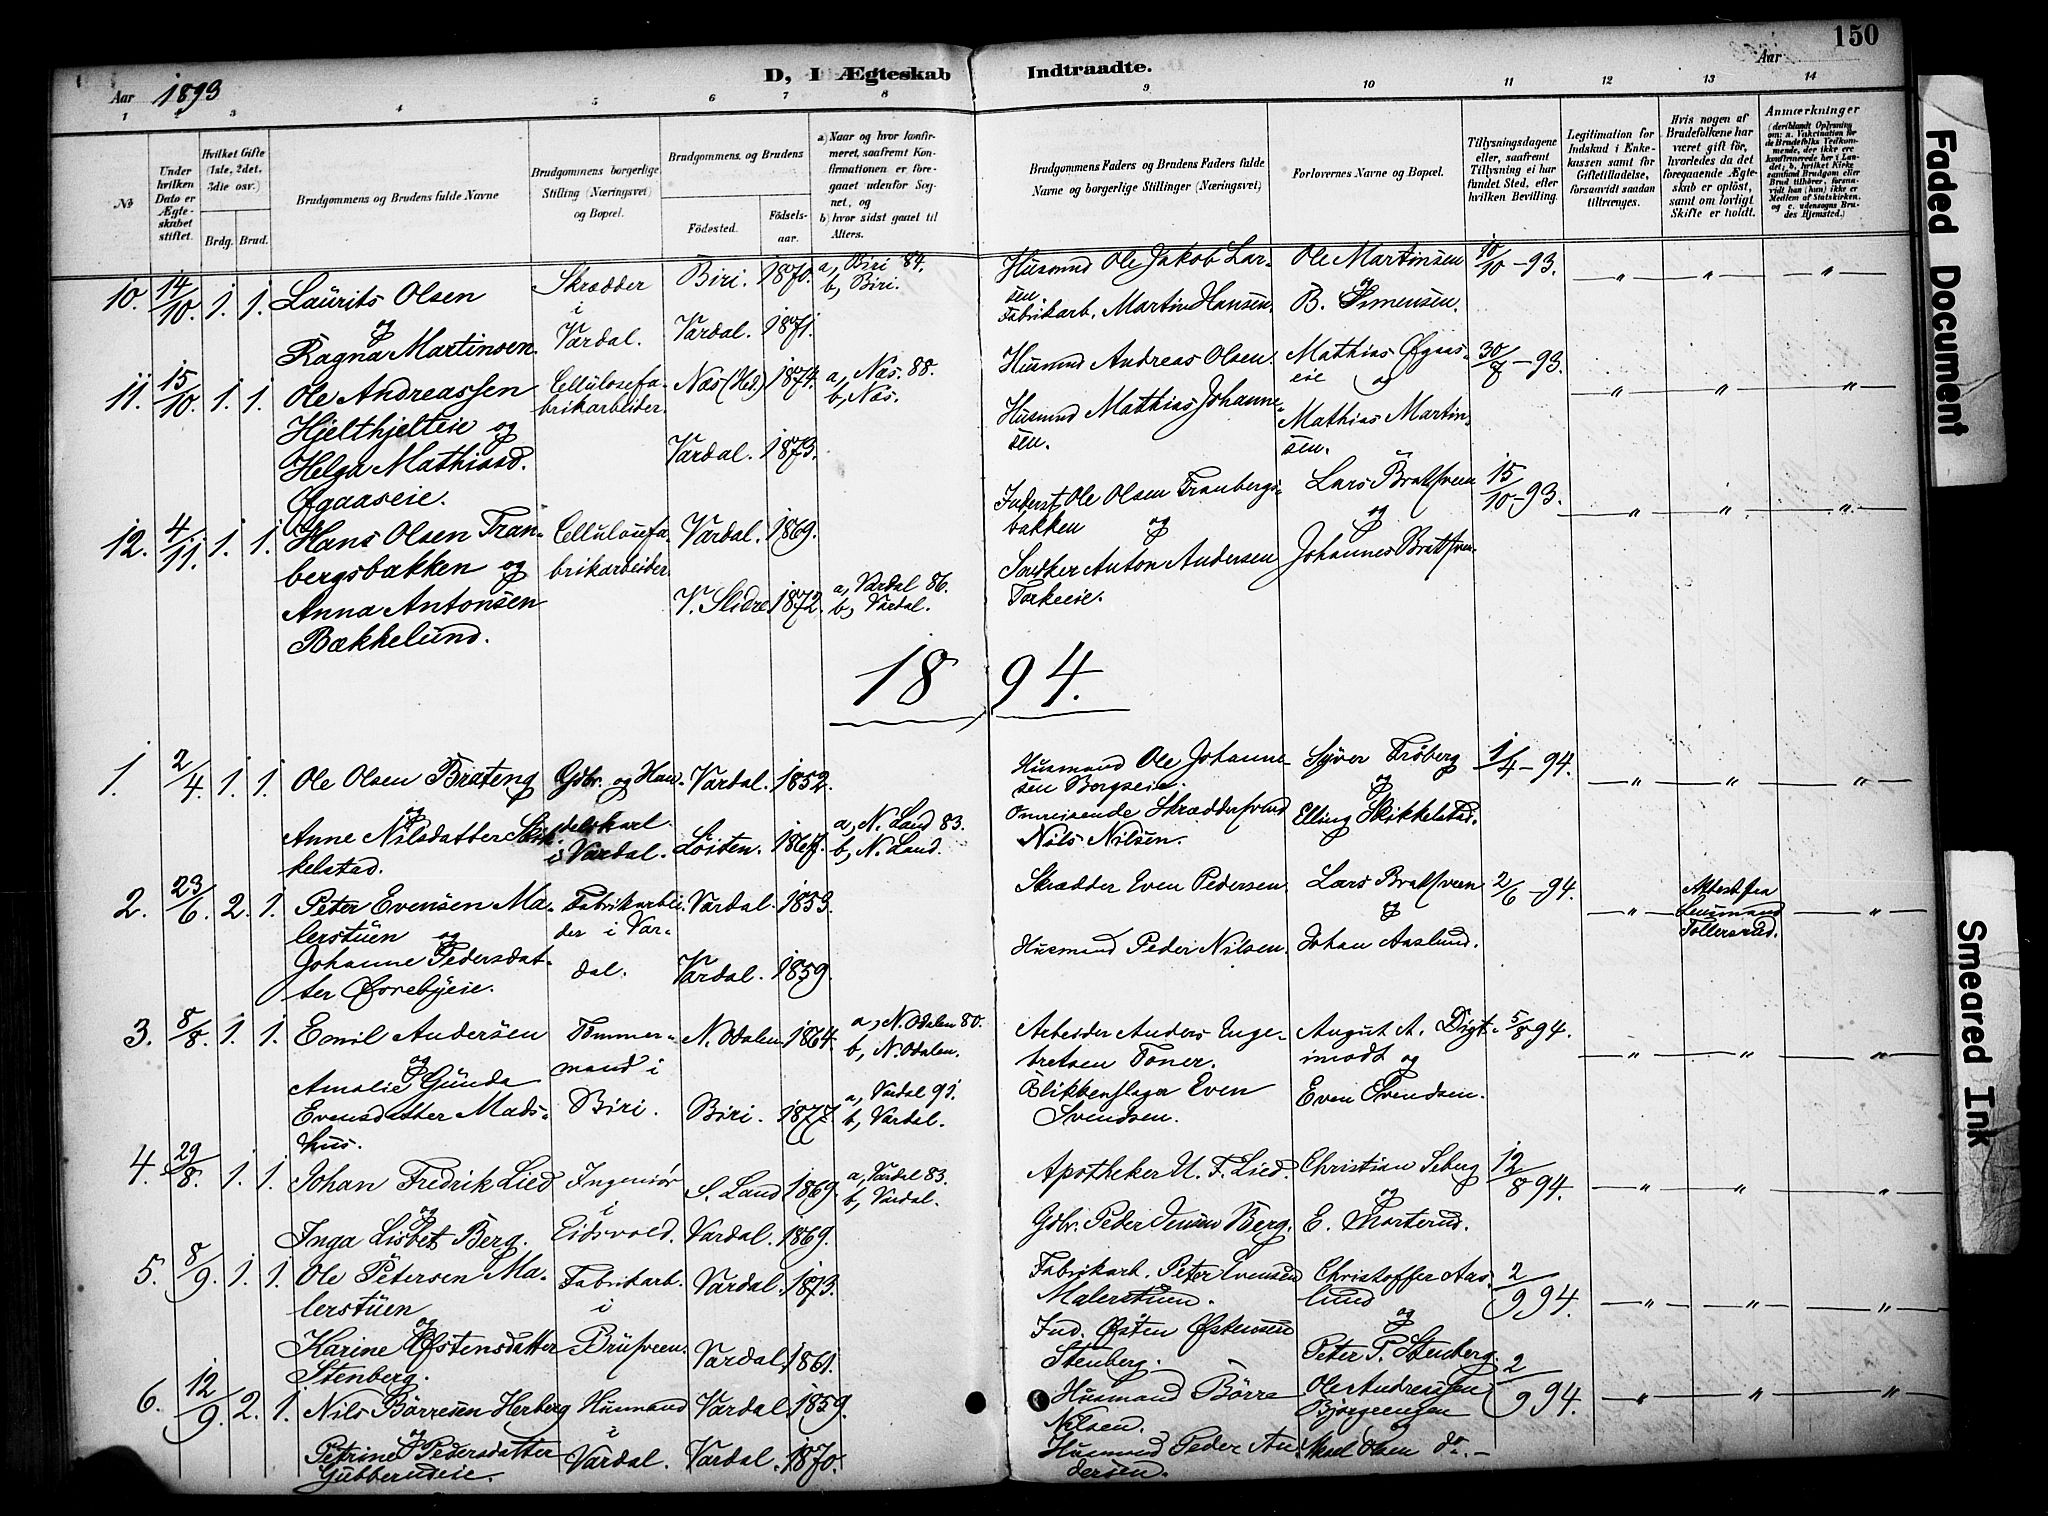 150
D, I Ægteskab Indtraadte.
Aar 1893
Aar
1 2 3 4 5 6 7 8 9 10 11 12 13 14
No
Under hvilken Dato er Ægteskabet stiftet.
Hvilket Gifte (1ste, 2det, 3die osv.)
Brdg. Brud.
Brudgommens og Brudens fulde Navne
Brudgommens borgerlige Stilling (Næringsvei) og Bopæl.
Brudgommens og Brudens
Fødested. Fødselsaar.
a) Naar og hvor konfirmeret, saafremt Konfirmationen er foregaaet udenfor Sognet, og
b) hvor sidst gaaet til Alters.
Brudgommens Faders og Brudens Faders fulde Navne og borgerlige Stillinger (Næringsvei)
Forlovernes Navne og Bopæl.
Tillysningsdagene eller, saafremt Tillysning ei har fundet Sted, efter hvilken Bevilling.
Legitimation for Indskud i Enkekassen samt for Giftetilladelse, forsaavidt saadan tiltrænges.
Hvis nogen af Brudefolkene har været gift før, hvorledes da det foregaaende Ægteskab er opløst, samt om lovligt Skifte er holdt.
Anmærkninger
10. 14/10. 1. 1. Laurits Olsen
og
Ragna Martinsen.
Skrædder
i
Vardal.
Biri. 1870.
Vardal. 1871.
a, Biri 84.
b, Biri.
Husmnd Ole Jakob Larsen
Fabrikarb. Martin Hansen.
Ole Martinsen
og
B. Simensen.
10/10 - 93. — " — " — "
11. 15/10. 1. 1. Ole Andreassen
Hjelthjelteie og
Helga Mathiasd.
Øgaaseie.
Cellulosefabrikarbeider.
Næs (Hed.) 1874.
Vardal. 1873.
a, Næs. 88.
b, Næs.
Husmnd Andreas Olsen.
Husmnd Mathias Johannesen.
Mathias Øgaaseie
og
Mathias Martinsen.
30/8 - 93. — " — " — "
12. 4/11. 1. 1. Hans Olsen Tranbergsbakken og
Anna Antonsen
Bækkelund.
Cellulosefabrikarbeider.
Vardal. 1869.
V. Slidre 1872.
a, Vardal 86.
b, Vardal.
Inderst Ole Olsen Tranbergsbakken
og
Snedker Anton Andersen
Lars Bratsveen
og
Johannes Bratsveen
15/10 - 93. — " — " — "
1894.
1. 2/4. 1. 1. Ole Olsen Brateng
og
Anne Nilsdatter Skikkelstad.
Gdbr. og Handelskarl
i Vardal.
Vardal. 1852.
Løiten. 1867.
a, N. Land 83.
b, N. Land.
Husmand Ole Johannesen Borgseie.
Omreisende Skræddersvend
Nils Nilsen.
Syver Frøberg
og
Elling Skikkelstad.
1/4 - 94. — " — " — "
2. 23/6. 2. 1. Peter Evensen Malerstuen
og
Johanne Pedersdatter Øvrebyeie.
Fabrikarbeider i Vardal.
Vardal. 1853.
Vardal. 1859.
Skrædder Even Pedersen
Husmand Peder Nilsen.
Lars Bratsveen
og
Johan Aaslund.
2/6 - 94. — "
Attest fra
Lensmand
Tollersrud. — "
3. 8/8. 1. 1. Emil Andersen
og
Amalie Gunda
Evensdatter Madshus.
Tømmermand i
Biri.
N. Odalen 1864.
Biri. 1877.
a, N. Odalen 80.
b, N. Odalen.
a, Vardal 91.
b, Vardal.
Arbeider Anders Engebretsen Toner.
Blikkenslager Even
Svendsen.
August A. Digt
og
Even Svendsen.
5/8 94. — " — " — "
4. 29/8. 1. 1. Johan Fredrik Lied
og
Inga Lisbet Berg.
Ingeniør
i
Eidsvold.
S. Land 1869.
Vardal. 1869.
a, Vardal 83.
b, Vardal.
Apotheker U. F. Lied.
Gdbr. Peder Jensen Berg.
Christian Seberg
og
E. Morterud.
12/8 94. — " — " — "
5. 8/9. 1. 1. Ole Petersen Malerstuen
og
Karine Østensdatter
Stenberg.
Fabrikarb.
i
Brusveen.
Vardal. 1873.
Vardal. 1861.
Fabrikarb. Peter Evensen
Malerstuen.
Ind. Østen Østensen
Stenberg.
Christoffer Aaslund
og
Peter P. Stenberg.
2/9 94. — " — " — "
6. 12/9. 2. 1. Nils Børresen Herberg
og
Petrine Pedersdatter
Gubberudeie.
Husmand
i
Vardal.
Vardal. 1859.
Vardal. 1870.
Husmand Børre
Nilsen.
Husmnd Peder Andersen.
Ole Andreassen
Bjørgeengen
Axel Olsen do. -
2/9 94. — " — " — "
Faded Document
Smeared Ink